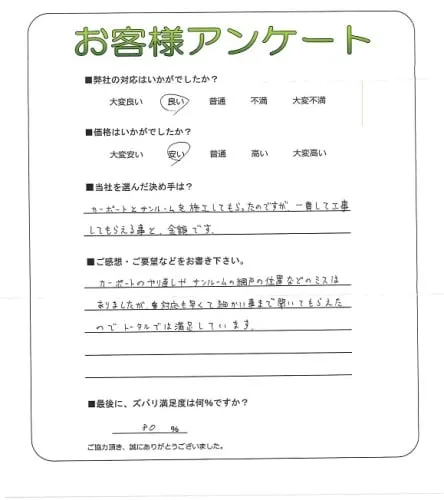 お客様アンケート
■弊社の対応はいかがでしたか？
大変良い 良い 普通 不満 大変不満
■価格はいかがでしたか？
大変安い 安い 普通 高い 大変高い
■当社を選んだ決め手は？
カーポートとサンルームを施工してもらったのですが、一貫して工事
してもらえる事と、金額です。
■ご感想・ご要望などをお書き下さい。
カーポートのヤリ直しやサンルームの網戸の位置などのミスは
ありましたが、対応も早くて細かい事まで聞いてもらえた
のでトータルでは満足しています。
■最後に、ズバリ満足度は何％ですか？
80 ％
ご協力頂き、誠にありがとうございました。